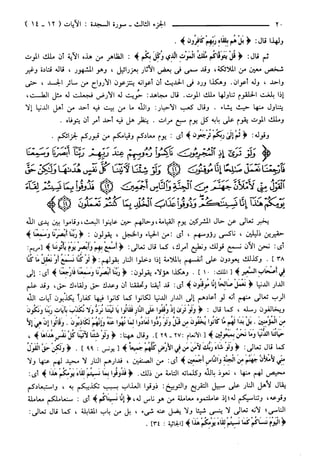 ٢٠ الجزء الثالث - سورة السجدة : الآيات ( ١٢ - ١٤ )
ولهذا قال : ﴿ بل هم بلقاء ربهم كافرون ﴾ .
ثم قال : ﴿ قل يتوفاكم ملك الموت الذي وكل بكم ﴾ : الظاهر من هذه الآية أن ملك الموت
شخص معين من الملائكة ، وقد سمي في بعض الآثار بعزرائيل ، وهو المشهور ، قاله قتادة وغير
واحد ، وله أعوان . وهكذا ورد في الحديث أن أعوانه ينتزعون الأرواح من سائر الجسد ، حتى
إذا بلغت الحلقوم تناولها ملك الموت . قال مجاهد : حويت له الأرض فجعلت له مثل الطست ،
يتناول منها حيث يشاء . وقال كعب الأحبار : والله ما من بيت فيه أحد من أهل الدنيا إلا
وملك الموت يقوم على بابه كل يوم سبع مرات . ينظر هل فيه أحد أمر أن يتوفاه .
وقوله : ﴿ ثم إلى ربكم ترجعون ﴾ أي : يوم معادكم وقيامكم من قبوركم لجزائكم .
﴿ ولو ترى إذ المجرمون ناكسوا رءوسهم عند ربهم ربنا أبصرنا وسمعنا
فارجعنا نعمل صالحا إنا موقنون ۝ ولو شئنا لآتينا كل نفس هداها ولكن حق
القول مني لأملأن جهنم من الجنة والناس أجمعين ۝ فذوقوا بما نسيتم لقاء
يومكم هذا إنا نسيناكم وذوقوا عذاب الخلد بما كنتم تعملون ۝ ﴾
يخبر تعالى عن حال المشركين يوم القيامة ، وحالهم حين عاينوا البعث ، وقاموا بين يدي الله
حقيرين ذليلين ، ناكسي رؤوسهم ، أي : من الحياء والخجل ، يقولون : ﴿ ربنا أبصرنا وسمعنا ﴾
أي : نحن الآن نسمع قولك ونطيع أمرك ، كما قال تعالى : ﴿ أسمع بهم وأبصر يوم يأتوننا ﴾ [ مريم :
٣٨ ] . وكذلك يعودون على أنفسهم بالملامة إذا دخلوا النار بقولهم : ﴿ لو كنا نسمع أو نعقل ما كنا
في أصحاب السعير ﴾ [ الملك : ١٠ ] . وهكذا هؤلاء يقولون : ﴿ ربنا أبصرنا وسمعنا فارجعنا ﴾ أي : إلى
الدار الدنيا ﴿ نعمل صالحا إنا موقنون ﴾ أي : قد أيقنا وتحققنا أن وعدك حق ولقاءك حق ، وقد علم
الرب تعالى منهم أنه لو أعادهم إلى الدار الدنيا لكانوا كما كانوا فيها كفارا يكذبون آيات الله
ويخالفون رسله ، كما قال : ﴿ ولو ترى إذ وقفوا على النار فقالوا يا ليتنا نرد ولا نكذب بآيات ربنا ونكون
من المؤمنين . بل بدا لهم ما كانوا يخفون من قبل ولو ردوا لعادوا لما نهوا عنه وإنهم لكاذبون . وقالوا إن هي إلا
حياتنا الدنيا وما نحن بمبعوثين ﴾ [ الأنعام : ٢٧ - ٢٩ ] . وقال ههنا : ﴿ ولو شئنا لآتينا كل نفس هداها ﴾ ،
كما قال تعالى : ﴿ ولو شاء ربك لآمن من في الأرض كلهم جميعا ﴾ [ يونس : ٩٩ ] . ﴿ ولكن حق القول
مني لأملأن جهنم من الجنة والناس أجمعين ﴾ أي : من الصنفين ، فدارهم النار لا محيد لهم عنها ولا
محيص لهم منها ، نعوذ بالله وكلماته التامة من ذلك . ﴿ فذوقوا بما نسيتم لقاء يومكم هذا ﴾ أي :
يقال لأهل النار على سبيل التقريع والتوبيخ : ذوقوا العذاب بسبب تكذيبكم به ، واستبعادكم
وقوعه ، وتناسيكم له ؛ إذ عاملتموه معاملة من هو ناس له ، ﴿ إنا نسيناكم ﴾ أي : سنعاملكم معاملة
الناسي ؛ لأنه تعالى لا ينسى شيئا ولا يضل عنه شيء ، بل من باب المقابلة ، كما قال تعالى :
﴿ اليوم ننساكم كما نسيتم لقاء يومكم هذا ﴾ [ الجاثية : ٣٤ ] .